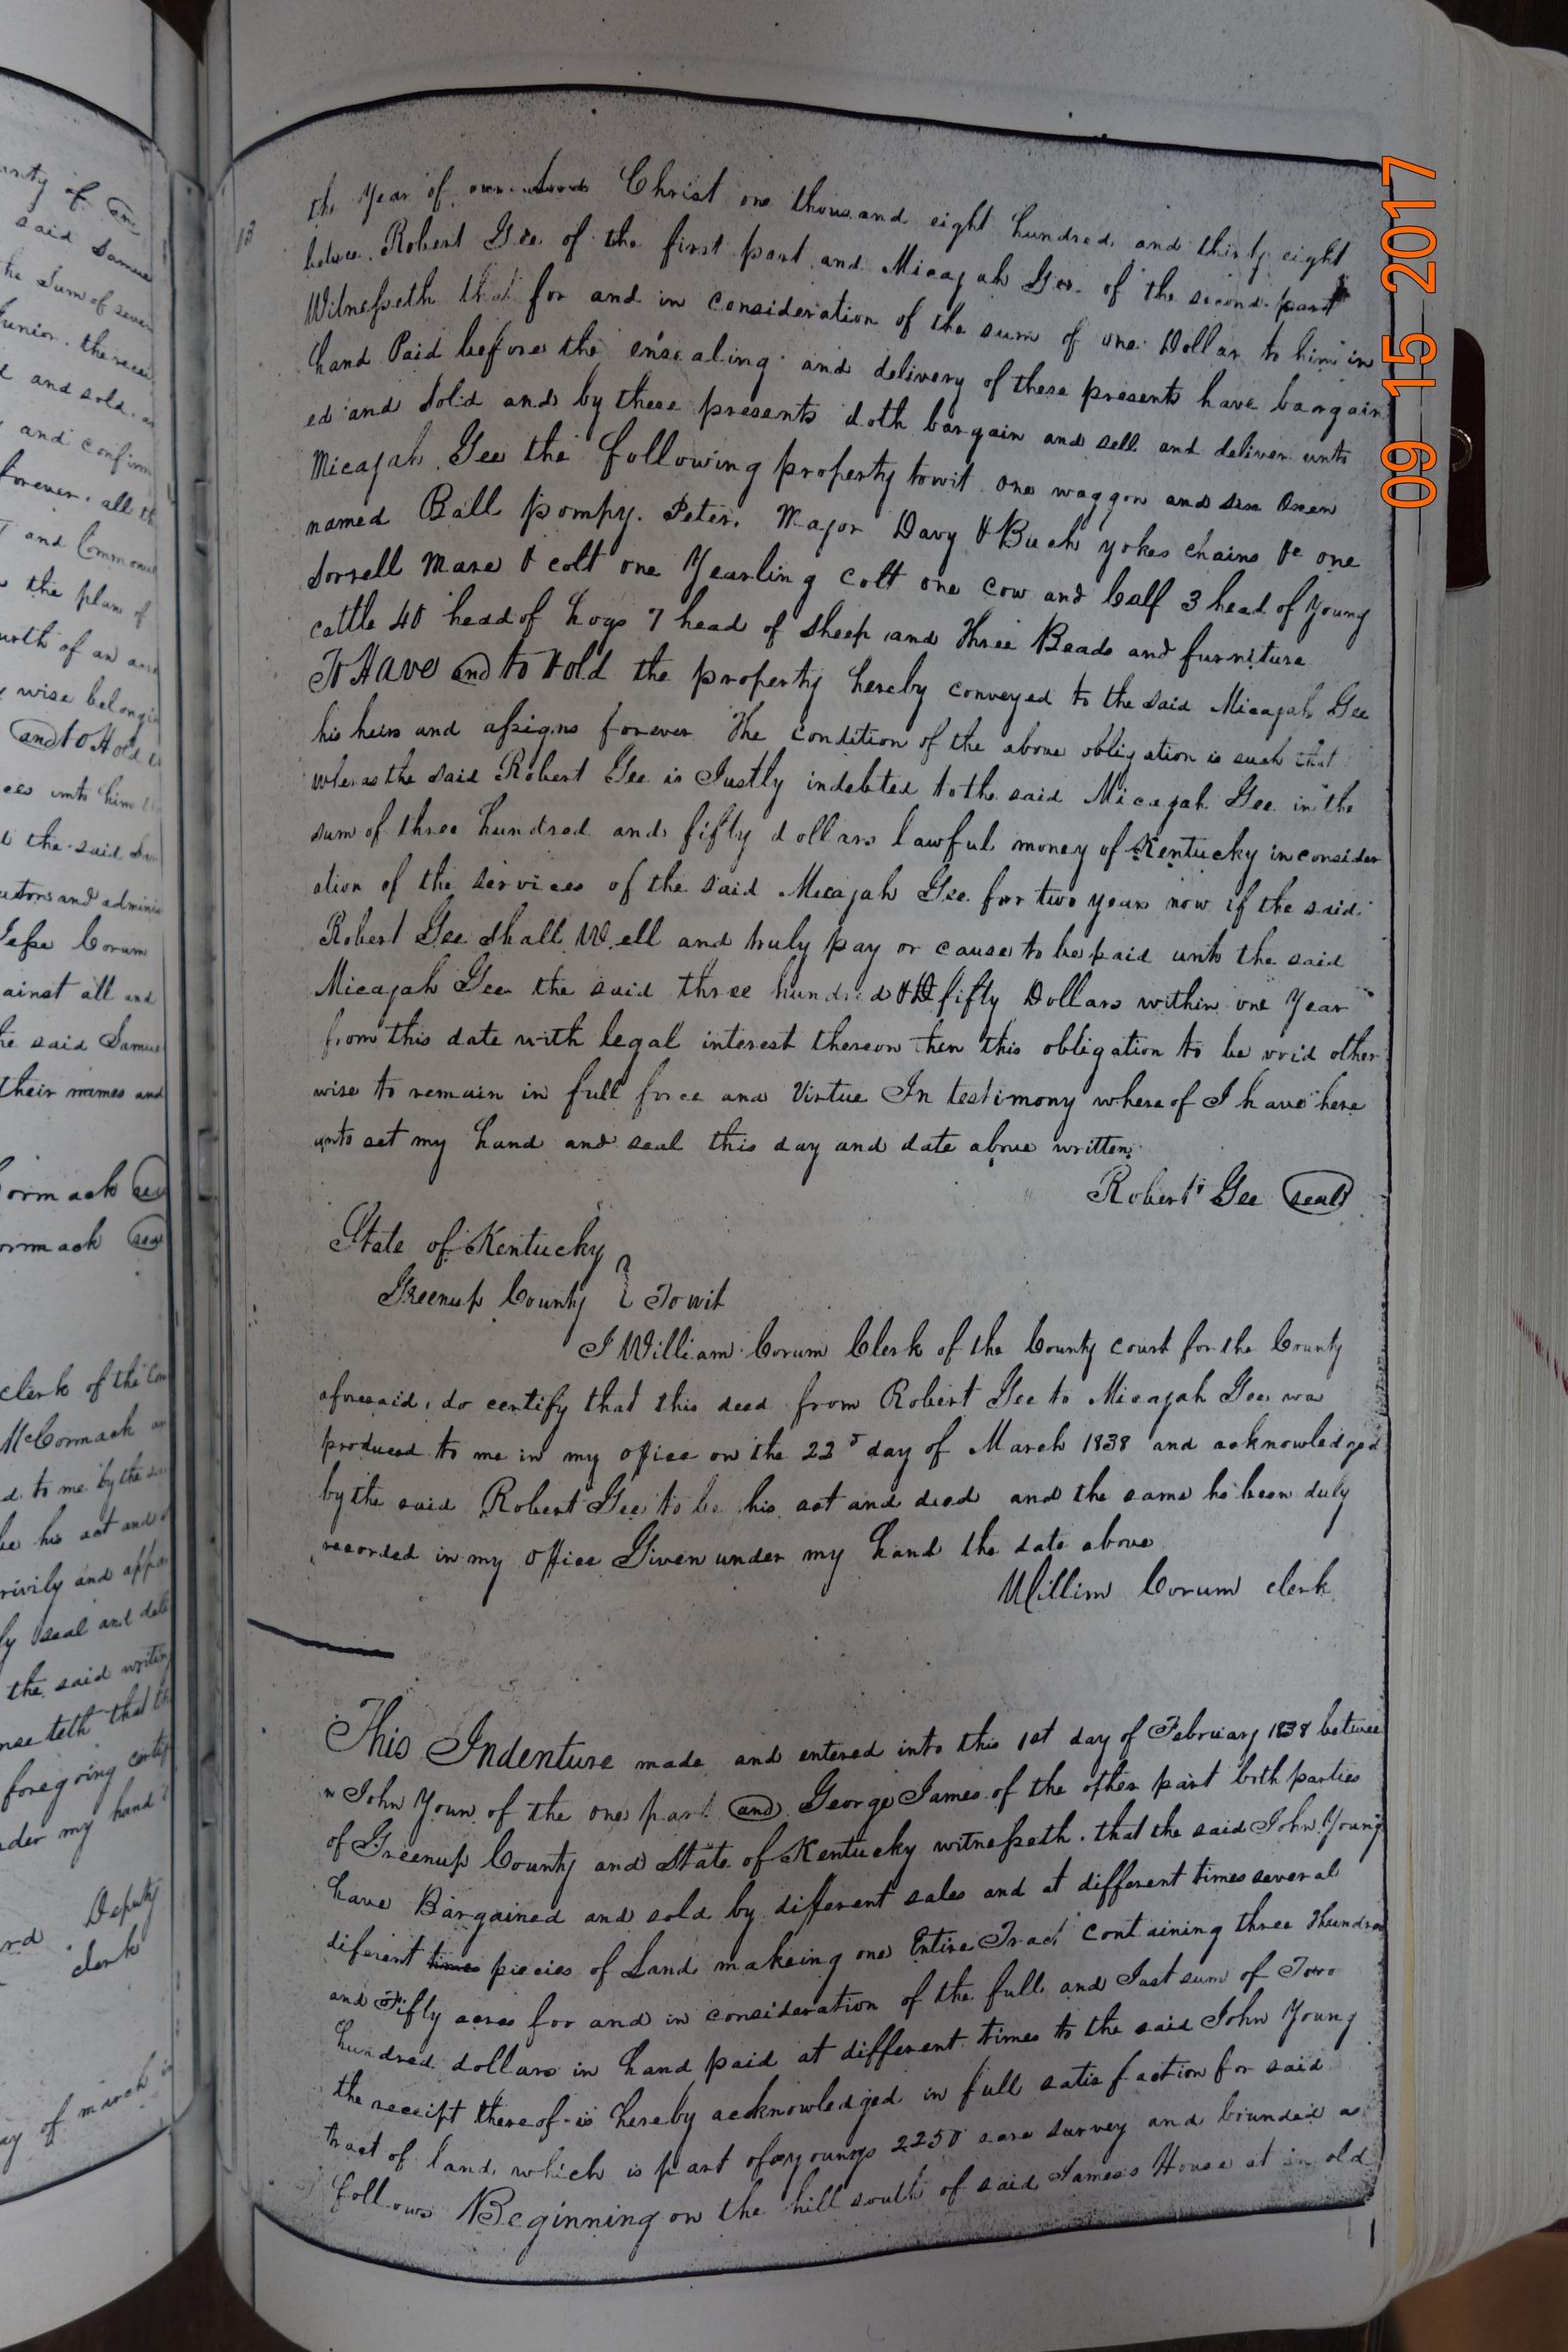 unty of Gre
said Samue
the Sum of seven
Junior. the recei
d and sold. an
and confirm
forever. all th
and Common
the plan of
urth of an acre
wise belongin
and to Hold
ces unto him
d the said
utors and adminis
Jesse Corum
ainst all and
he said Samue
their names and
ormack seal
ormack seal
clerk of the Cou
McCormack an
d to me by the
be his act and
rivily and appa
ly seal and deli
the said writin
nse teth that th
foregoing certif
nder my hand
Deputy
rd clerk
ay of march
13
the Year of our Lords Christ one thousand eight hundred and thirty eight
betwee Robert Gee of the first part and Micajah Gee of the second part
Witnesseth that for and in consideration of the sum of one Dollar to him in
hand Paid before the ensealing and delivery of these presents have bargain
ed and Sold and by these presents doth bargain and sell and deliver unto
Micajah Gee the following property towit one waggon and six Oxen
named Ball pompy. Peter. Major Davy & Buck yokes chains &c one
Sorrell Mare & colt one Yearling Colt one cow and Calf 3 head of Young
cattle 40 head of hogs 7 head of sheep and Three Beads and furniture
To Have and to Hold the property hereby conveyed to the said Micajah Gee
his heirs and assigns forever The condition of the above obligation is such that
wheras the said Robert Gee is Justly indebted to the said Micajah Gee in the
sum of three hundred and fifty dollars lawful money of Kentucky in consider
ation of the services of the said Micajah Gee for two years now if the said
Robert Gee Shall Well and truly pay or cause to be paid unto the said
Micajah Gee the said three hundred & fifty Dollars within one Year
from this date with legal interest thereon then this obligation to be void other
wise to remain in full force and Virtue In testimony whereof I have here
unto set my hand and seal this day and date above written
Robert Gee seal
State of Kentucky
Greenup County } Towit
I William Corum Clerk of the County court for the County
aforesaid, do certify that this deed from Robert Gee to Micajah Gee wa
produced to me in my office on the 22d day of March 1838 and acknowledged
by the said Robert Gee to be his act and deed and the same hs been duly
recorded in my office Given under my hand the date above
Willim Corum clerk
This Indenture made and entered into this 1st day of February 1838 betwee
n John Youn of the one part and George James of the other part both parties
of Greenup County and State of Kentucky witnesseth. that the said John Young
have Bargained and sold by different sales and at different times several
diferent times piecies of Land makeing one Entire Tract containing three Hundred
and Fifty acres for and in consideration of the full and Just sum of Two
hundred dollars in hand paid at different times to the said John Young
the receipt thereof is hereby acknowledged in full satisfaction for said
tract of land which is part of youngs 2250 acre survey and bounded as
follows Beginning on the hill south of said James's House at an old
09 15 2017